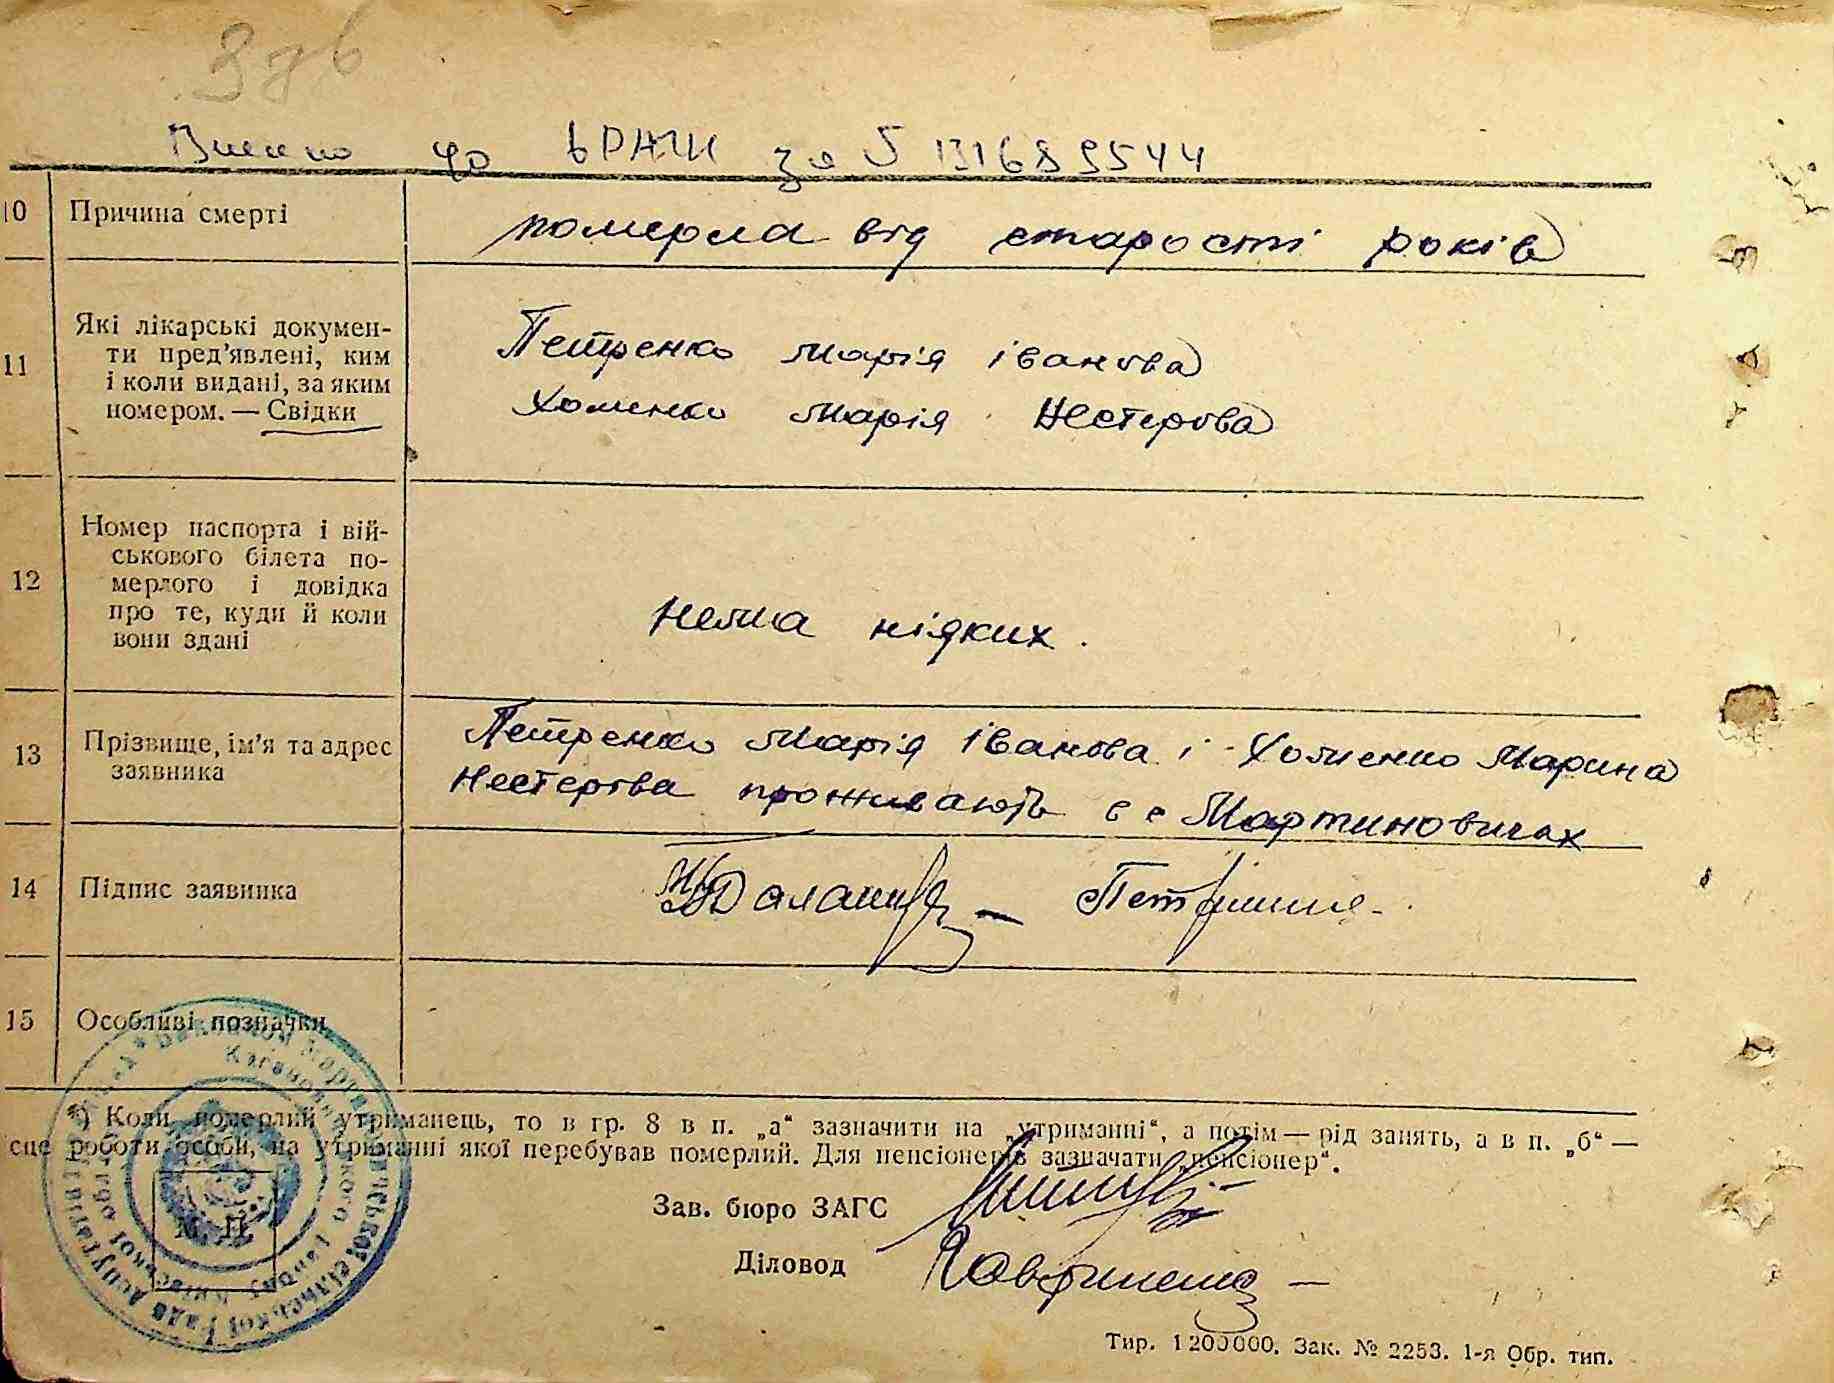 до ДРАЦС за 5 1316 89544
10 Причина смерті
померла від старості років
11 Які лікарські докумен-
ти пред'явлені, ким
і коли видані, за яким
номером. — Свідки
Петренко Марія Іванова
Хоменко Марія Нестерова
12 Номер паспорта і вій-
ськового білета по-
мерлого і довідка
про те, куди й коли
вони здані
нема ніяких.
13 Прізвище, ім'я та адрес
заявника
Петренко Марія Іванова і Хоменко Марина
Нестерова проживають в с Мартиновичах
14 Підпис заявника
15 Особливі позначки
*) Коли померлий утриманець, то в гр. 8 в п. „а“ зазначити на „утриманні“, а потім — рід занять, а в п. „б“ —
сце роботи особи, на утриманні якої перебував померлий. Для пенсіонерів зазначати „пенсіонер“.
М П
Зав. бюро ЗАГС
Діловод
Тир. 1200000. Зак. № 2253. 1-я Обр. тип.